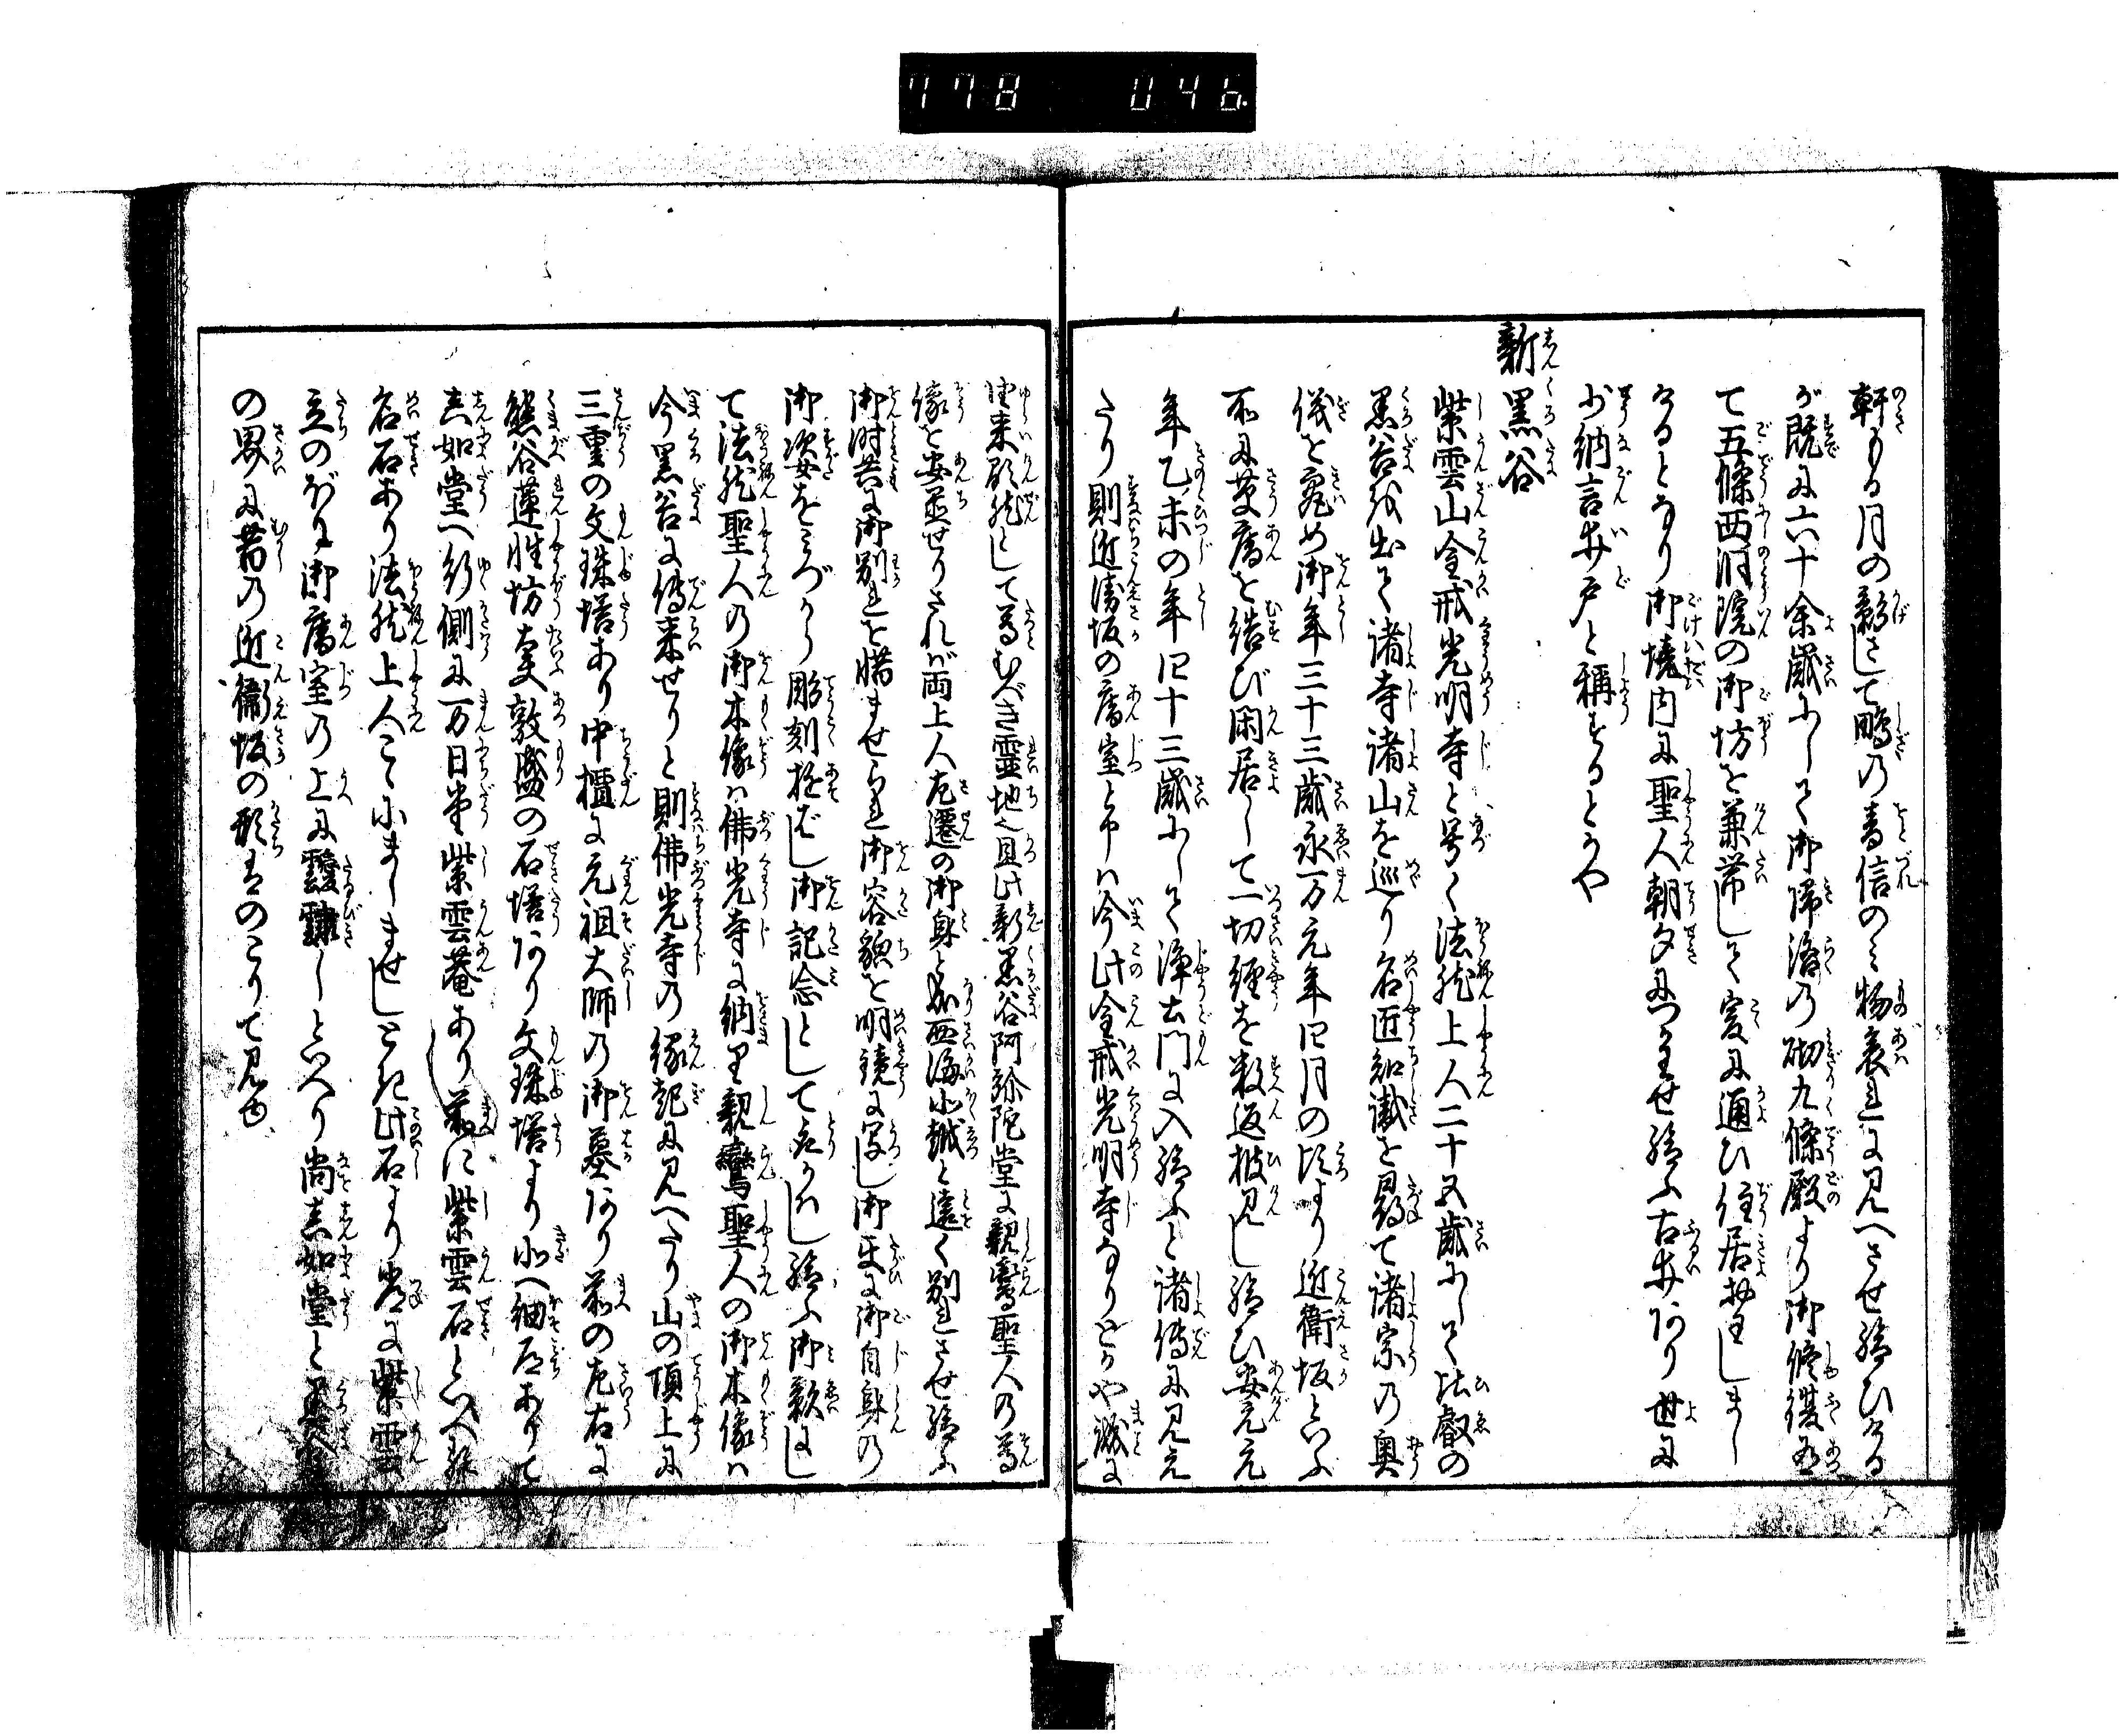 778 046
軒もる月の影さして鴫の音信のミ物哀れに見へさせ給ひける
が既に六十余歳にして御帰洛の砌九條殿より御修復有
て五條西洞院の御坊を兼帯して爰に通ひ住居ましまし
けるとなり御境内に聖人朝夕にせ給ふ古井あり世に
少納言井戸と称するとかや
新黒谷
紫雲山金戒光明寺と号く法然上人二十五歳にして比叡の
黒谷を出て諸寺諸山を巡り名匠知識を尋て諸宗の奥
儀を究め御年三十三歳承万元年四月の比より近衛坂といふ
所に草庵を結び閑居して一切経を数返披見し給ひ安元元
年乙未の年四十三歳にして浄土門に入給ふと諸傳に見え
たり則近衛坂の庵室と申ハ今此金戒光明寺なりとかや誠に
往来顕然として尊むべき霊地也且此新黒谷阿弥陀堂に親鸞聖人の尊
像を安置せりされバ両上人左遷の御身と成西海北越と遠く別れさせ給ふ
御時共に御別れを惜ませられ御容貌を明鏡に写し御互に御自身の
御姿をみづから彫刻遊ばし御記念として取かハし給ふ御歎にし
て法然聖人の御木像ハ佛光寺に納り親鸞聖人の御木像ハ
今黒谷に傳来せりと則佛光寺の縁起に見へたり山の頂上に
三重の文殊塔あり中檀に元祖大師の御墓あり前の左右に
熊谷蓮性坊太夫敦盛の石塔あり文殊塔より北へ細道ありて
真如堂へ行側に一万日堂紫雲菴あり前に紫雲石といへる
名石あり法然上人こゝにましませしとき此石より常に紫雲
立のぼり御庵室の上に靉靆しといへり尚真如堂と黒谷
の界に昔の近衛坂の形ちのこりて見ゆ